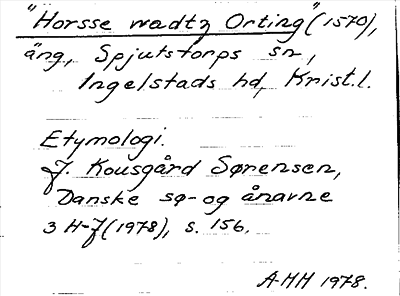 "Horsse wadtz Orting" (1570),
äng, Spjutstorps sn,
Ingelstads hd, Krist.l.
Etymologi.
J. Kousgård Sørensen,
Danske sø- og ånavne
3 H-J (1978), s. 156.
A-HH 1978.